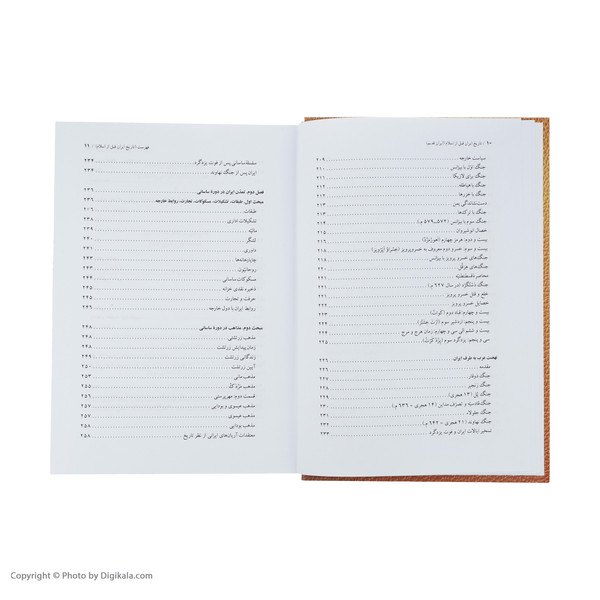 ۱۰ / تاریخ ایران قبل از اسلام (ایران قدیم)
سیاست خارجه ۲۰۹
جنگ اوّل با بیزانس ۲۱۰
جنگ برای لازیکا ۲۱۱
جنگ با هیاطله ۲۱۲
جنگ با خزرها ۲۱۳
دست‌نشاندگی یمن ۲۱۳
جنگ با ترک‌ها ۲۱۴
جنگ سوم با بیزانس (۵۷۲ـ۵۷۹ م) ۲۱۴
خصال انوشیروان ۲۱۵
بیست و دوم: هرمز چهارم (اهورمَزْدَ) ۲۱۶
بیست و سوم: خسرو دوم معروف به خسروپرویز ۲۱۸
جنگ‌های خسرو پرویز با بیزانس ۲۱۸
جنگ‌های هرقل ۲۲۰
محاصرهٔ قسطنطنیّه ۲۲۱
جنگ دَسْتگَرْد (در سال ۶۲۷ م) ۲۲۱
خلع و قتل خسرو پرویز ۲۲۲
خصایل خسرو پرویز
بیست و چهارم: قباد دوم (کَوات) ۲۲۴
بیست و پنجم: اردشیر سوم
بیست و ششم الی سی و چهارم: زمان هرج و مرج ۲۲۵
سی و پنجم: یزدگرد سوم
نهضت عرب به طرف ایران ۲۲۶
مقدمه ۲۲۶
جنگ ذوقار ۲۲۷
جنگ زنجیر ۲۲۸
جنگ پُل (۱۳ هجری) ۲۲۹
جنگ قادسیّه و تصرّف مداین (۱۴ هجری = ۶۳۶ م) ۲۳۰
جنگ جلولاء ۲۳۱
جنگ نهاوند (۲۱ هجری = ۶۴۲ م) ۲۳۲
تسخیر ایالات ایران و فوت یزدگرد ۲۳۳
فهرست (تاریخ ایران قبل از اسلام) / ۱۱
سلسلهٔ ساسانی پس از فوت یزدگرد ۲۳۴
ایران پس از جنگ نهاوند ۲۳۴
فصل دوم: تمدن ایران در دورهٔ ساسانی ۲۳۶
مبحث اول: طبقات، تشکیلات، مسکوکات، تجارت، روابط خارجه ۲۳۶
طبقات ۲۳۶
تشکیلات اداری
مالیّه
لشگر
داوری
چاپارخانه‌ها
روحانیّون
مسکوکات ساسانی
ذخیره نقدی خزانه ۲۴۵
حرفت و تجارت ۲۴۵
روابط ایران با دول خارجه ۲۴۶
مبحث دوم: مذاهب در دورهٔ ساسانی ۲۴۸
مذهب زرتشتی ۲۴۸
زمان پیدایش زرتشت
زندگانی زرتشت
آیین زرتشت ۲۵۰
مذهب مانی ۲۵۳
مذهب مَزْدَک ۲۵۵
قسمت دوم: مهرپرستی ۲۵۶
مذهب عیسوی و بودایی ۲۵۷
مذهب عیسوی ۲۵۷
مذهب بودایی ۲۵۸
معتقدات آریان‌های ایرانی از نظر تاریخ ۲۵۸
Copyright © Photo by Digikala.com